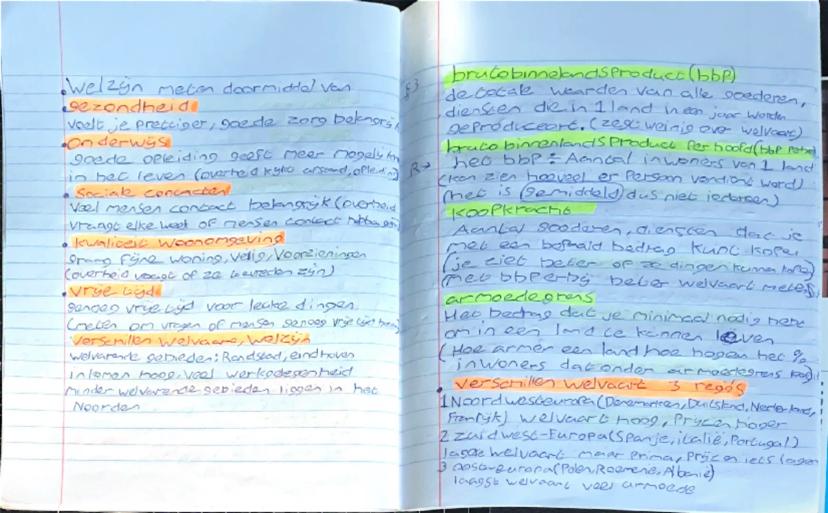 • Welzijn meten doormiddel van
• gezondheid
voelt je prettiger, goede zorg belangrijk
• Onderwijs
goede opleiding geeft meer mogelijk
in het leven (overheid kijkt
• Sociale contacten
Veel mensen contact belangrijk (overheid
vraagt elke week of mensen contact hebben
• kwaliteit woonomgeving
graag fijne woning, veilig, voorzieningen
(overheid vraagt of ze tevreden zijn)
• Vrije tijd
genoeg vrije tijd voor leuke dingen.
(meten om vragen of mensen genoeg vrije tijd
Verschillen welvaart, Welzijn
welvarende gebieden: Randstad, eindhoven
inkomen hoog, veel werkgelegenheid
minder welvarende gebieden liggen in het
Noorden
§3 brutobinnelandsproduct (bbp)
de totale waarden van alle goederen,
diensten die in 1 land in een jaar worden
geproduceert. (zegt weinig over welvaart)
bruto binnenlandsproduct per hoofd (bbp
het bbp ÷ Aantal inwoners van 1 land
(kan zien hoeveel er Persoon verdient word)
(het is (gemiddeld) dus niet iedereen)
koopkracht
Aantal goederen, diensten dat je
met een bepaald bedrag kunt kopen
(je ziet beter of ze dingen kunnen kopen)
(met bbp erbij beter welvaart meten)
armoedegrens
Het bedrag dat je minimaal nodig hebt
om in een land te kunnen leven
(Hoe armer een land hoe hoger het %
inwoners dat onder armoedegrens
• verschillen welvaart 3 regios
1 Noordwesteuropa (Denemarken, Duitsland, Nederland,
Frankrijk) welvaart hoog, Prijzen hoger
2 zuidwest-Europa (Spanje, italië, Portugal)
lagere welvaart maar Prima, Prijzen iets lager
3 oosteuropa (Polen, Roemenië, Albanië)
laagst welvaart veel armoede